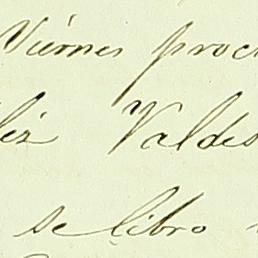 Viernes proc
lez Valdes
se libro